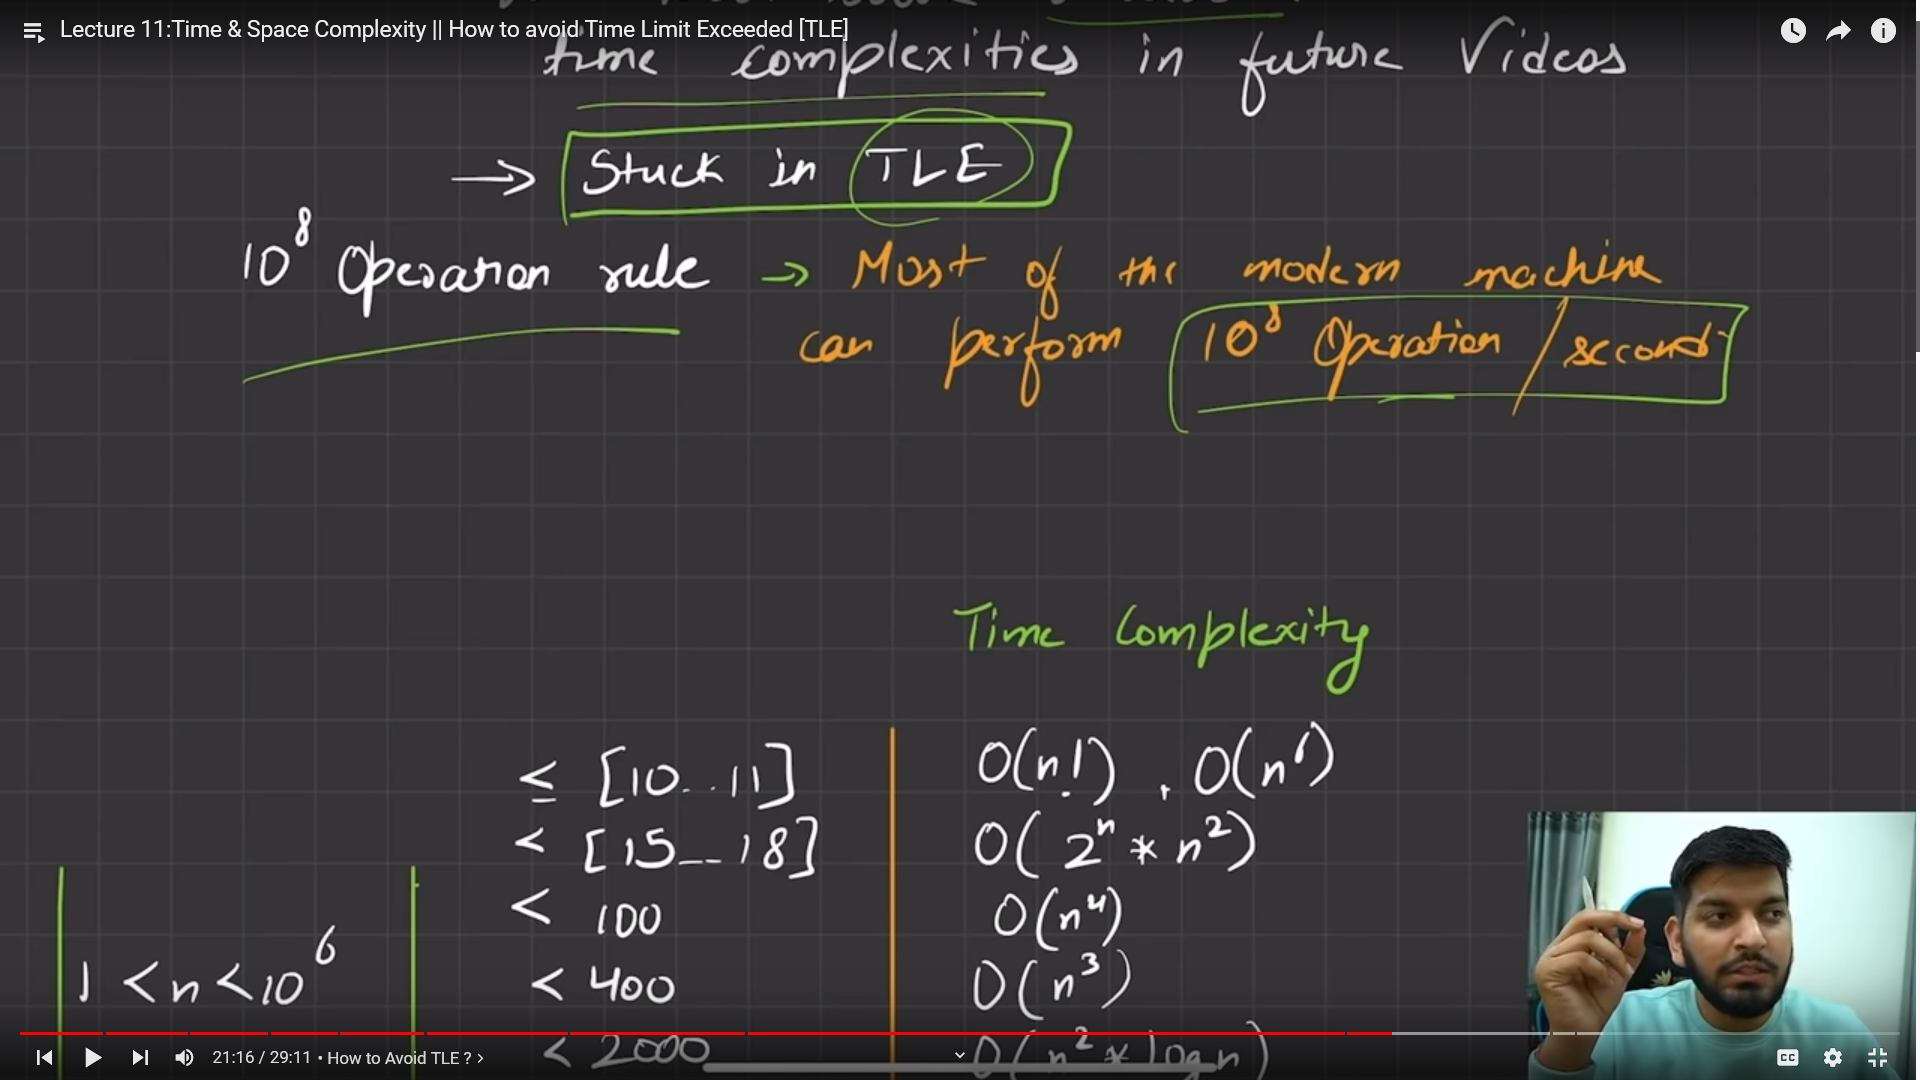 Lecture 11:Time & Space Complexity || How to avoid Time Limit Exceeded [TLE]
time complexities in future Videos
→ Stuck in TLE
10⁸ Operation rule → Most of the modern machine
can perform 10⁸ Operation / second
Time Complexity
≤ [10...11] O(n!), O(n⁶)
< [15__18] O(2ⁿ * n²)
< 100 O(n⁴)
1 < n < 10⁶
< 400 O(n³)
< 2000 O(n² * log n)
21:16 / 29:11 • How to Avoid TLE ? >
CC